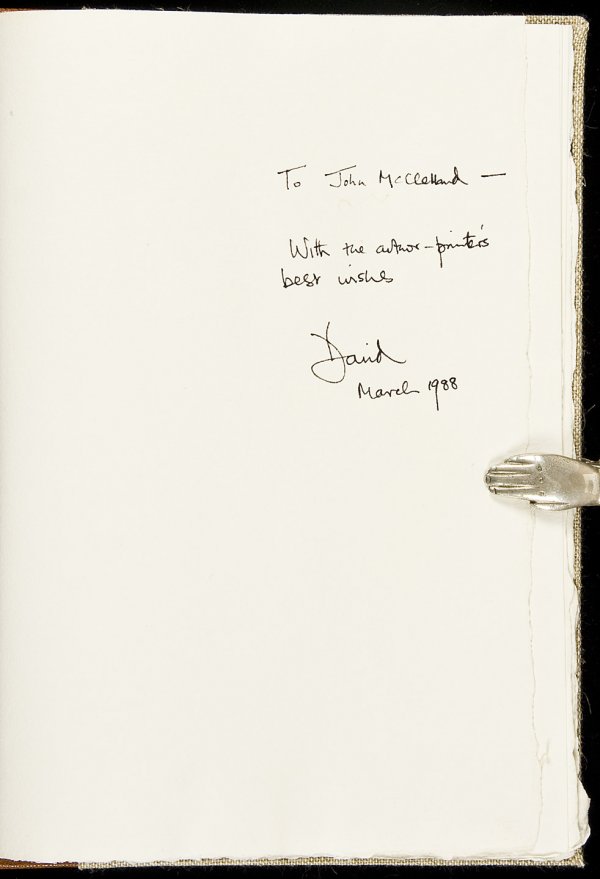 To John McClelland —
With the author-printer's
best wishes
David
March 1988